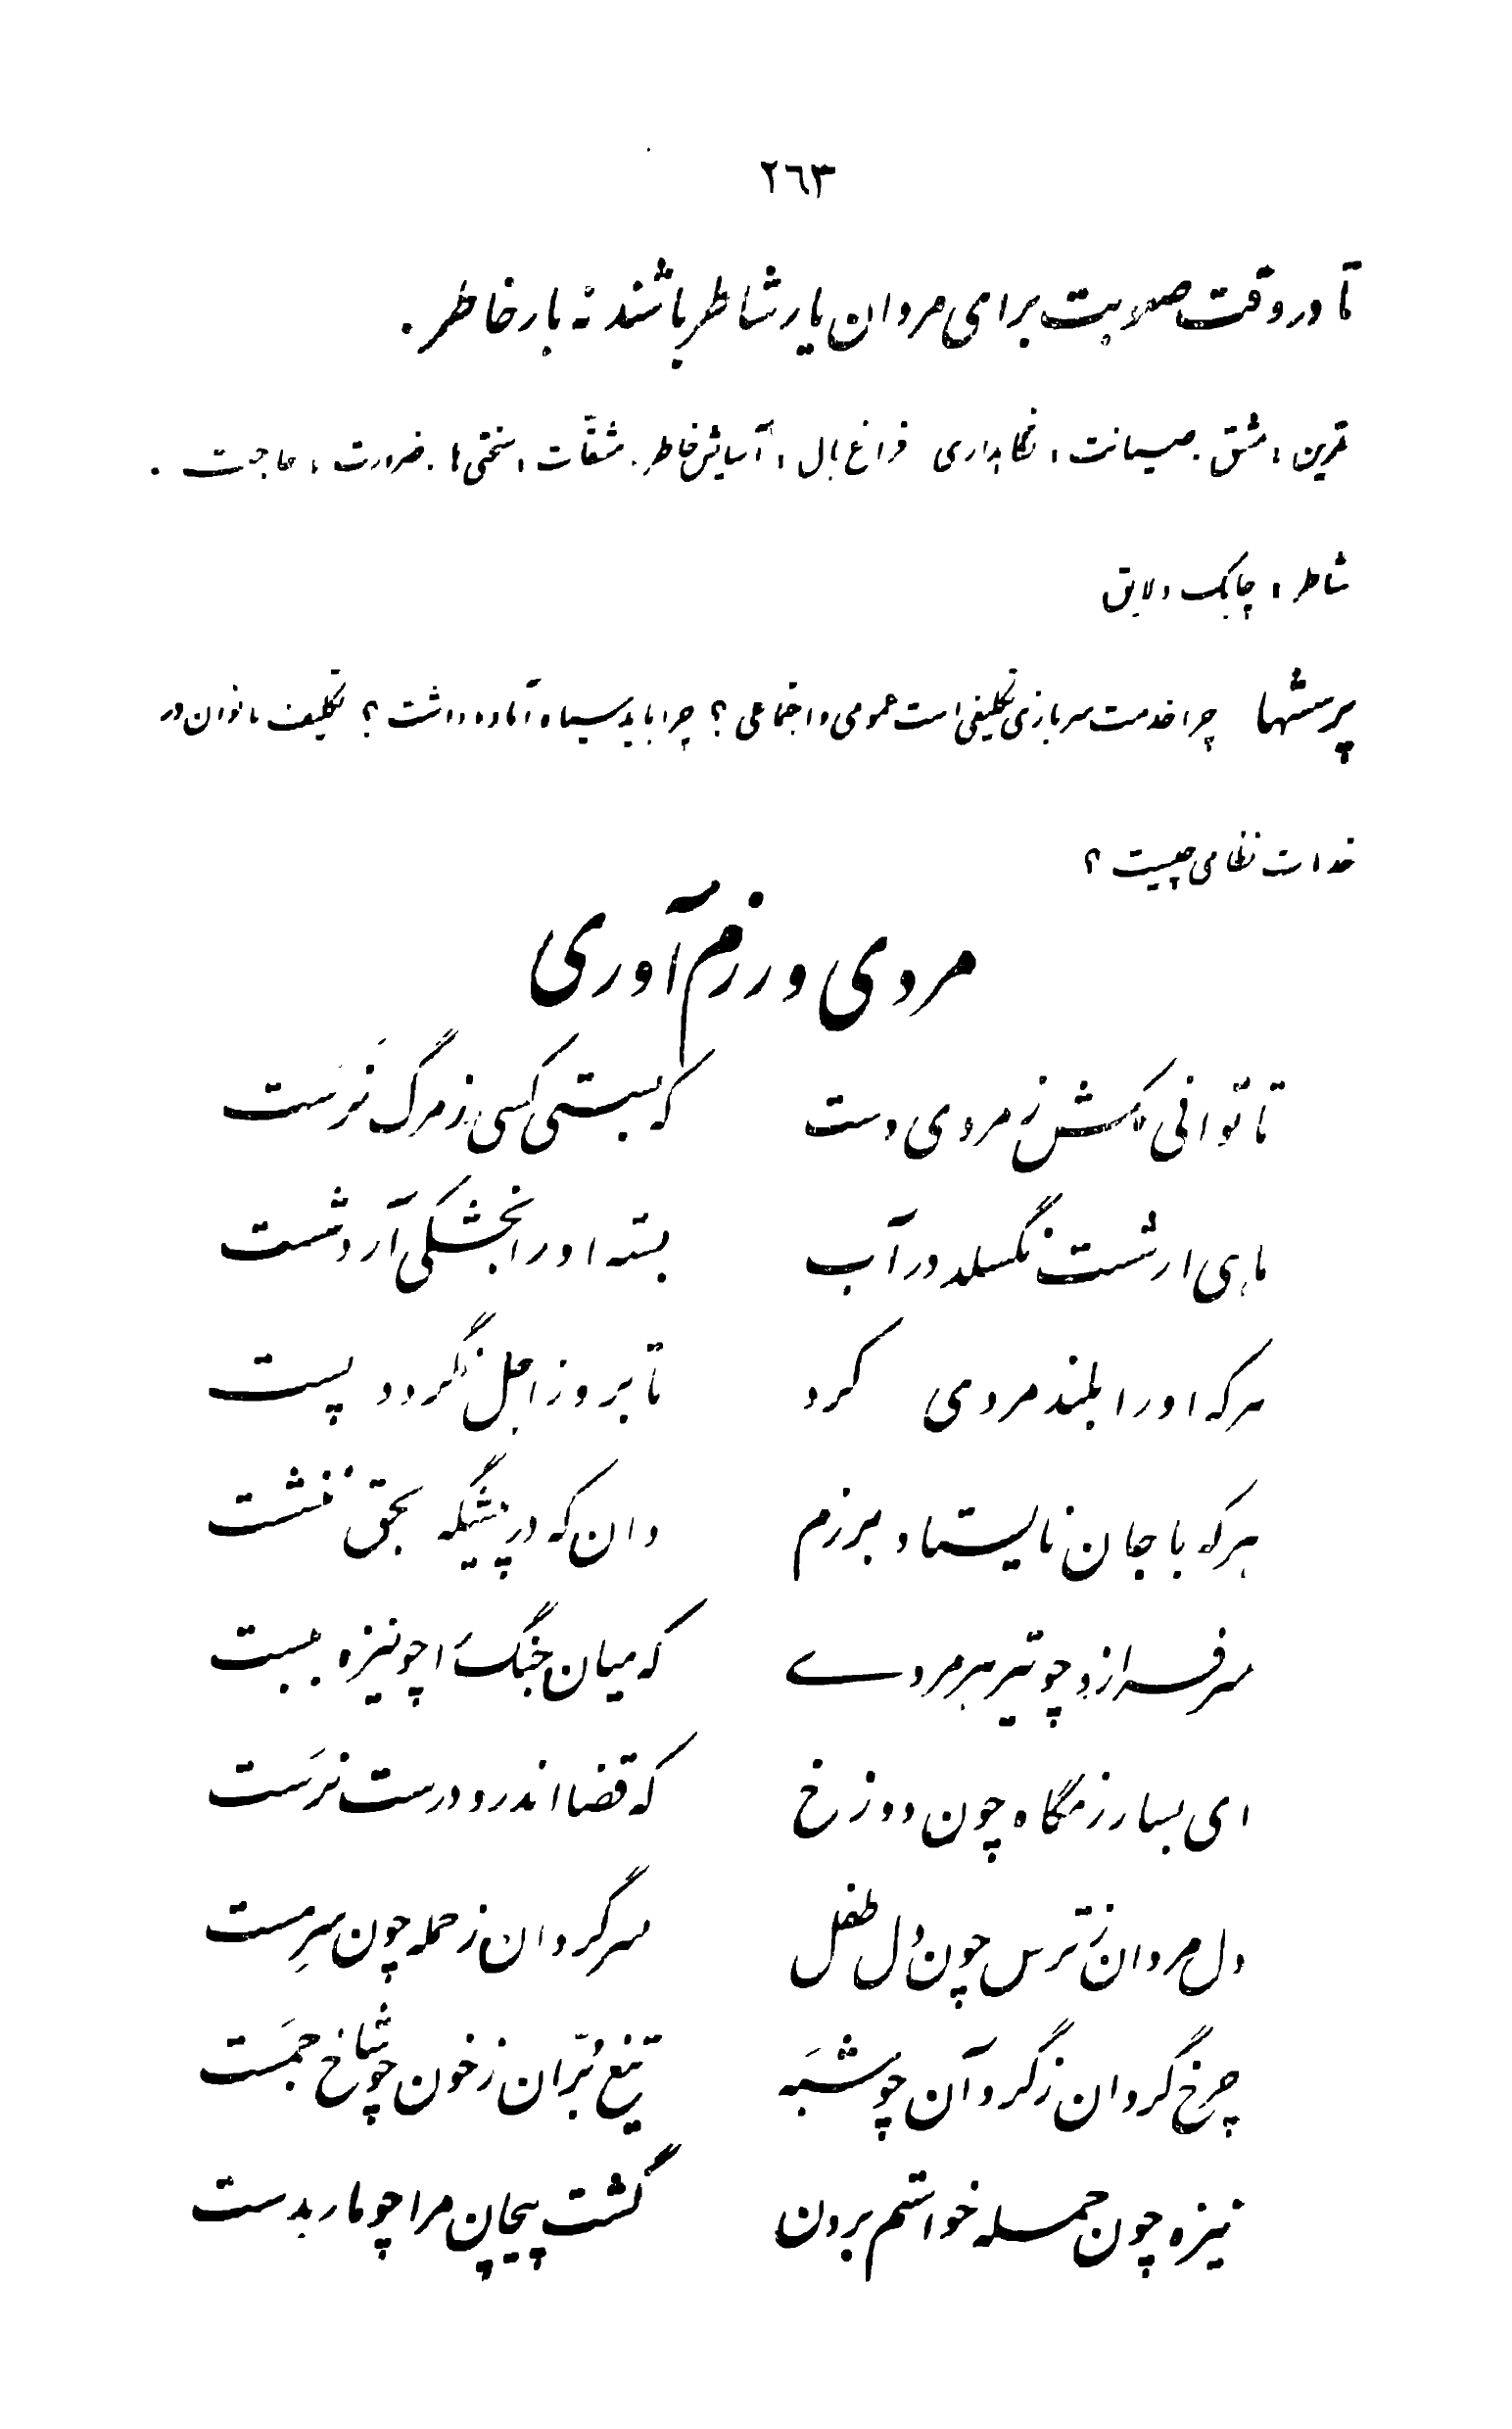 ۲۶۳
تا در وقت صعوبت برای مردان یار شاطر باشند نه بار خاطر .
تمرین ، مشق . صیانت ، نگاهداری فراغ بال ، آسایش خاطر . مشقّات ، سختی ها . ضرورت ، حاجت .
شاطر ، چابک و لایق
پرسشها چرا خدمت سربازی تکلیفی است عمومی و اجتماعی ؟ چرا باید سپاه آماده داشت ؟ تکلیف بانوان در
خدمات نظامی چیست ؟
مردی و رزم آوری
تا توانی مکش ز مردی دست که بسستی کسی ز مرگ نَرَست
ماهی ار شست نگسلد در آب بسته او را بخشکی آرد شست
هر که او را بلند مردی کرد تا بروز اجل نگردد پست
هر که با جان نایستاد برزم دان که در پیشگه بحق ننشست
سر فرازد چو تیر هر مردے که میان جنگ را چو نیزه ببست
ای بسا رزمگاه چون دوزخ که قضا اندرو درست نرَست
دل مردان ز ترس چون دل طفل سر گردان ز حمله چون سرِ مست
چرخ گردان ز گرد آن چو شَبَه تیغ بُرّان ز خون چو شاخ جمَست
نیزه چون حمله خواستم بردن گشت پیچان مرا چو مار بدست